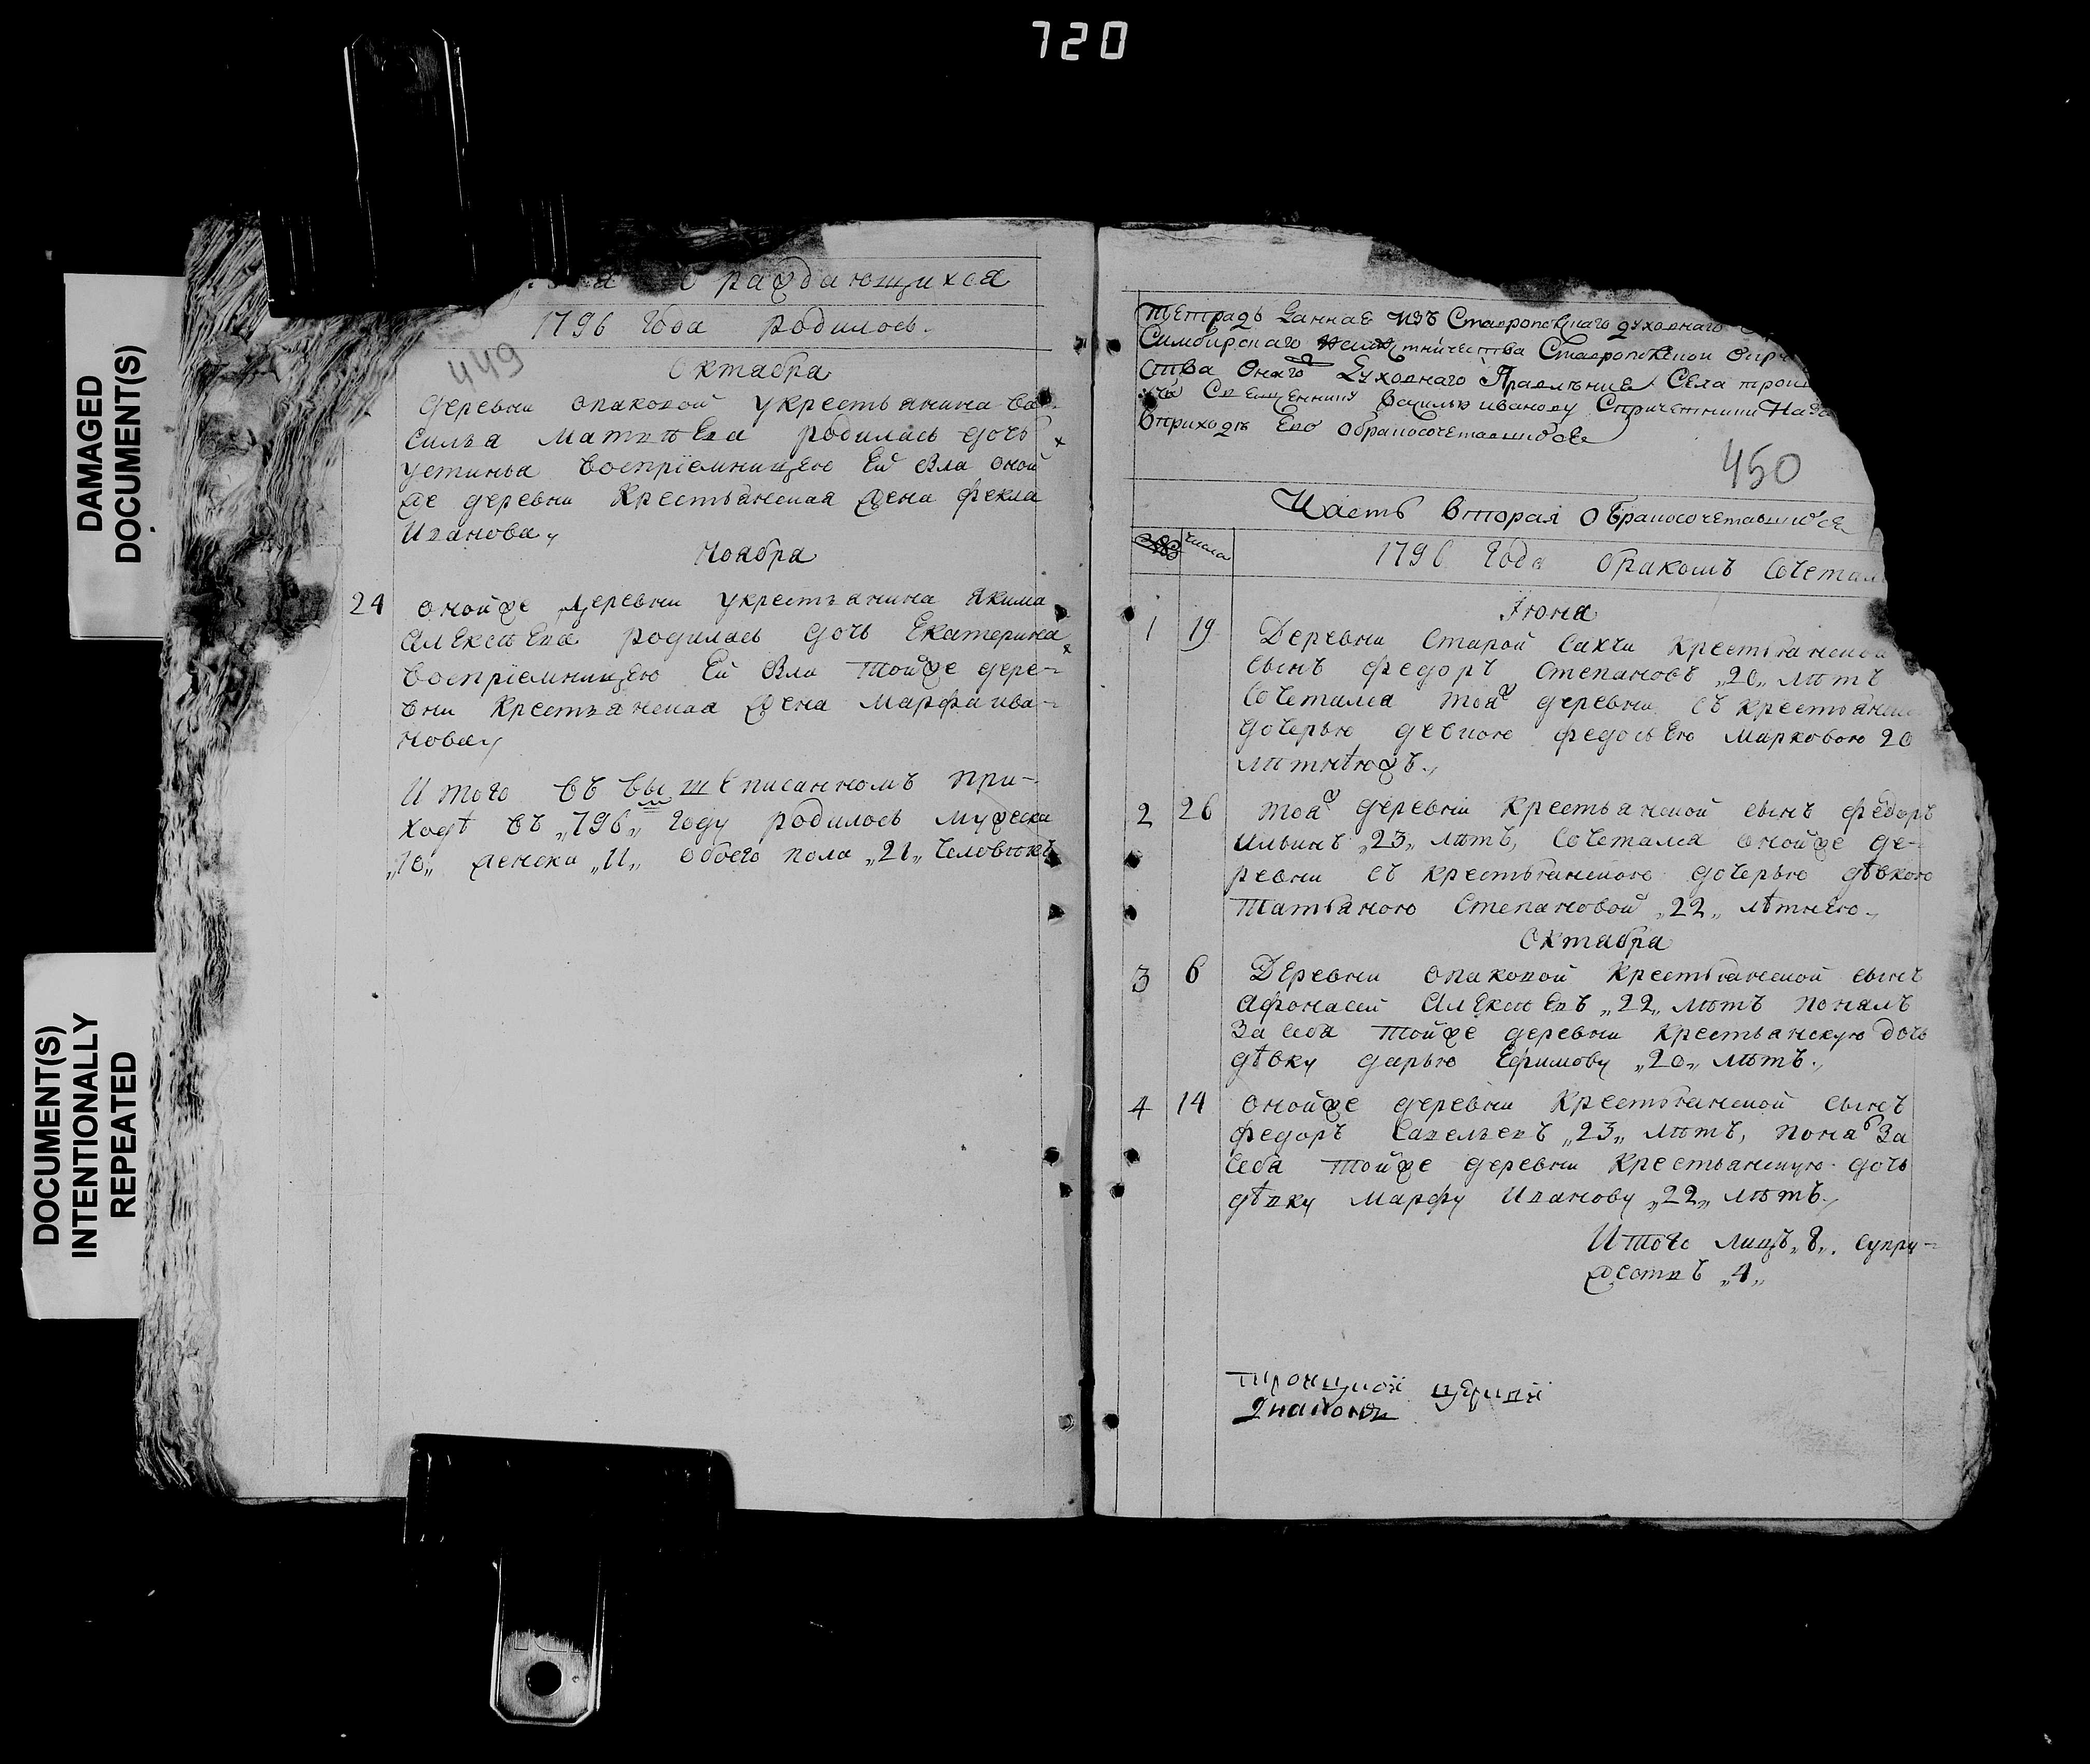 720
DAMAGED
DOCUMENT(S)
DOCUMENT(S)
INTENTIONALLY
REPEATED
раждающихся
1796 года родилось.
449
Октября
деревни опаковой укрестьянина ва-
силья матвѣева родилась дочь
устинья воспріемницею ей была оной
же деревни крестьянская жена фекла
Иванова,
Ноября
24 онойже деревни укрестьянина якима
алексѣева родилась дочь Екатерина
воспріемницею ей была тойже дере-
вни крестьянская жена марфа ива-
нова,
Итого въ вышеписанномъ при-
ходѣ въ „796„ году родилось мужеска
„10„ женска „11„ обоего пола „21„ человѣкъ
Тетрадь данная изъ Ставропольскаго духовнаго
Симбирскаго наместничества Ставропольской окру
ства онаго духовнаго Правленія Села трои
Священнику василью иванову Спричетники
вприходѣ его обракосочетавшихся
450
Часть вторая обракосочетавшихся
числа
1796 года бракомъ сочетал
Іюня
1 19 Деревни Старой Сахчи крестьянской
сынъ федоръ степановъ „20„ лѣтъ
сочетался тояж деревни съ крестьянск
дочерью девкою федосьею марковою 20
лѣтнею
2 26 тояж деревни крестьянской сынъ федоръ
ильинъ „23„ лѣтъ, сочетался онойже де-
ревни съ крестьянскою дочерью дѣвкою
татьяною степановой „22„ лѣтнею.,
Октября
3 6 Деревни опаковой крестьянской сынъ
афонасей алексѣевъ „22„ лѣтъ понялъ
за себя тойже деревни крестьянскую дочь
дѣвку дарью Ефимову „20„ лѣтъ.,
4 14 онойже деревни крестьянской сынъ
федоръ савельевъ „23„ лѣтъ, поня за
себя тойже деревни крестьянскую дочь
дѣвку марфу Иванову „22„ лѣтъ.,
Итого лицъ „8„. супру-
жествъ „4„
троицкой церкви
Диаконъ